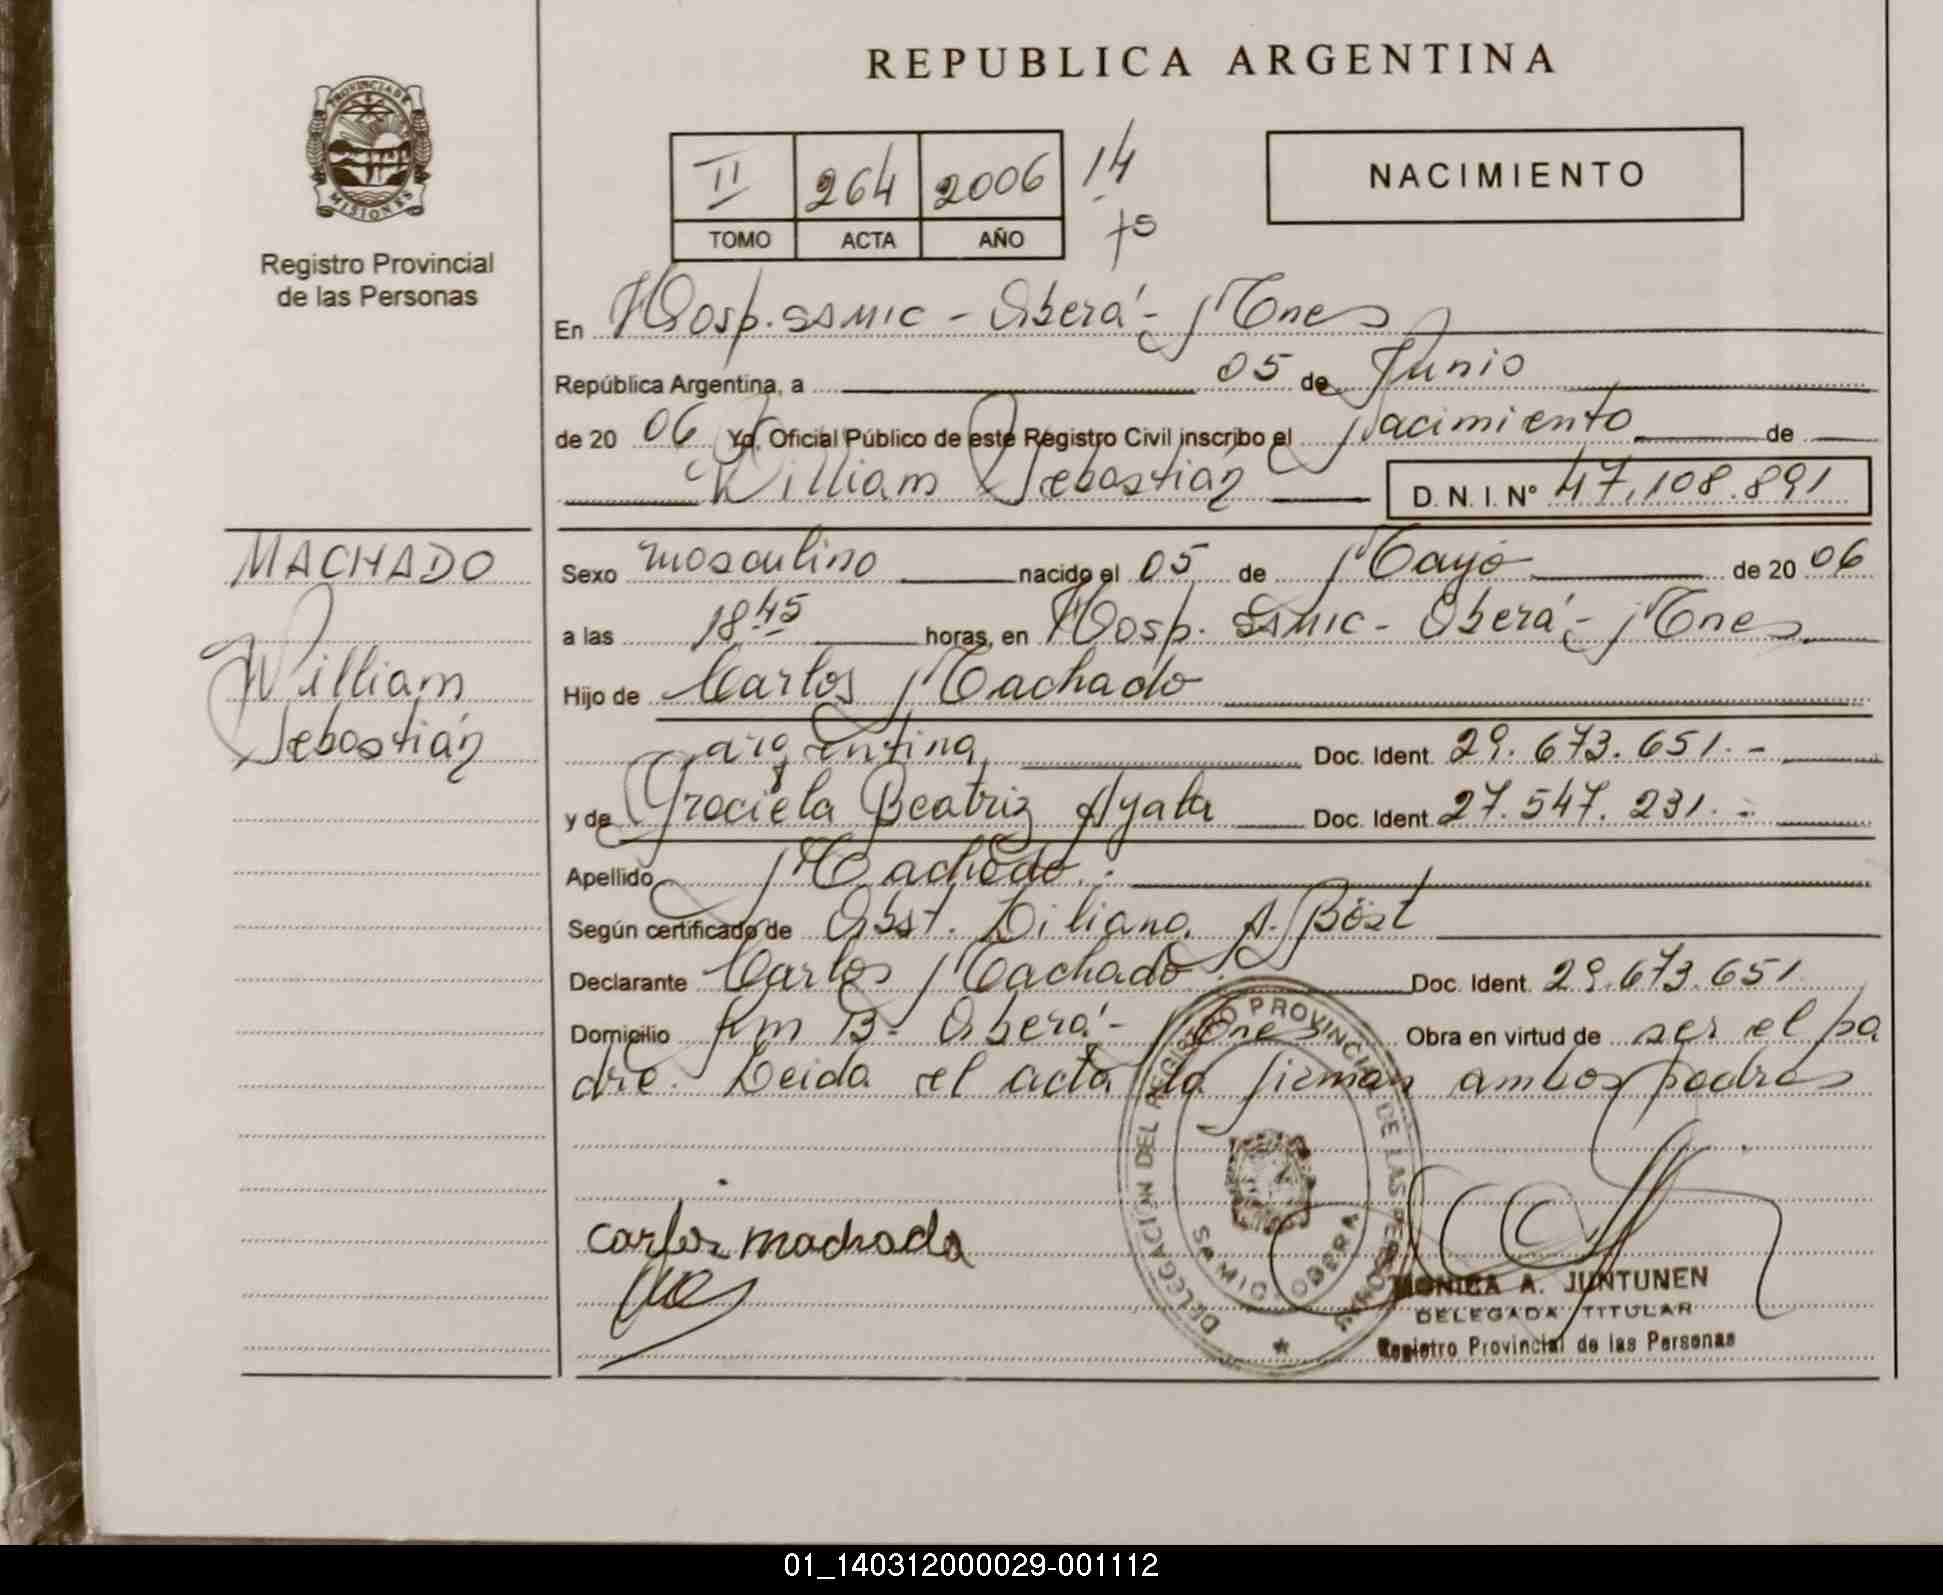 REPUBLICA ARGENTINA
PROVINCIA DE
MISIONES
Registro Provincial
de las Personas
II 264 2006 14
TOMO ACTA AÑO
NACIMIENTO
En Hosp. SAMIC - Oberá - Mnes
República Argentina, a 05 de Junio
de 2006 Yo, Oficial Público de este Registro Civil inscribo el Nacimiento de
William Sebastián D. N. I. Nº 47.108.891
MACHADO
William
Sebastián
Sexo masculino nacido el 05 de Mayo de 2006
a las 18 45 horas, en Hosp. SAMIC - Oberá - Mnes
Hijo de Carlos Machado
argentina Doc. Ident. 29.673.651.-
y de Graciela Beatriz Ayala Doc. Ident. 27.547.231.-
Apellido Machado.
Según certificado de Obst. Liliana A. Böst
Declarante Carlos Machado Doc. Ident. 29.673.651
Domicilio Km 13 - Oberá - Mnes Obra en virtud de ser el pa
dre. Leida el acta la firman ambos padres
carlos machado
DELEGACION DEL REGISTRO PROVINCIAL DE LAS PERSONAS
SAMIC - OBERA
MONICA A. JUNTUNEN
DELEGADA TITULAR
Registro Provincial de las Personas
01_140312000029-001112